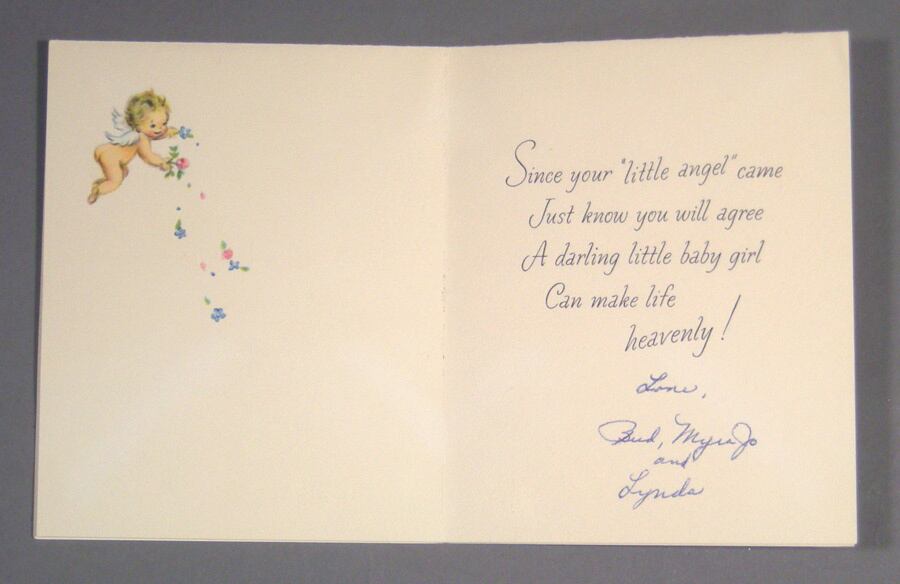 Since your "little angel" came
Just know you will agree
A darling little baby girl
Can make life
heavenly!
Love,
Bud, Myra Jo
and
Lynda